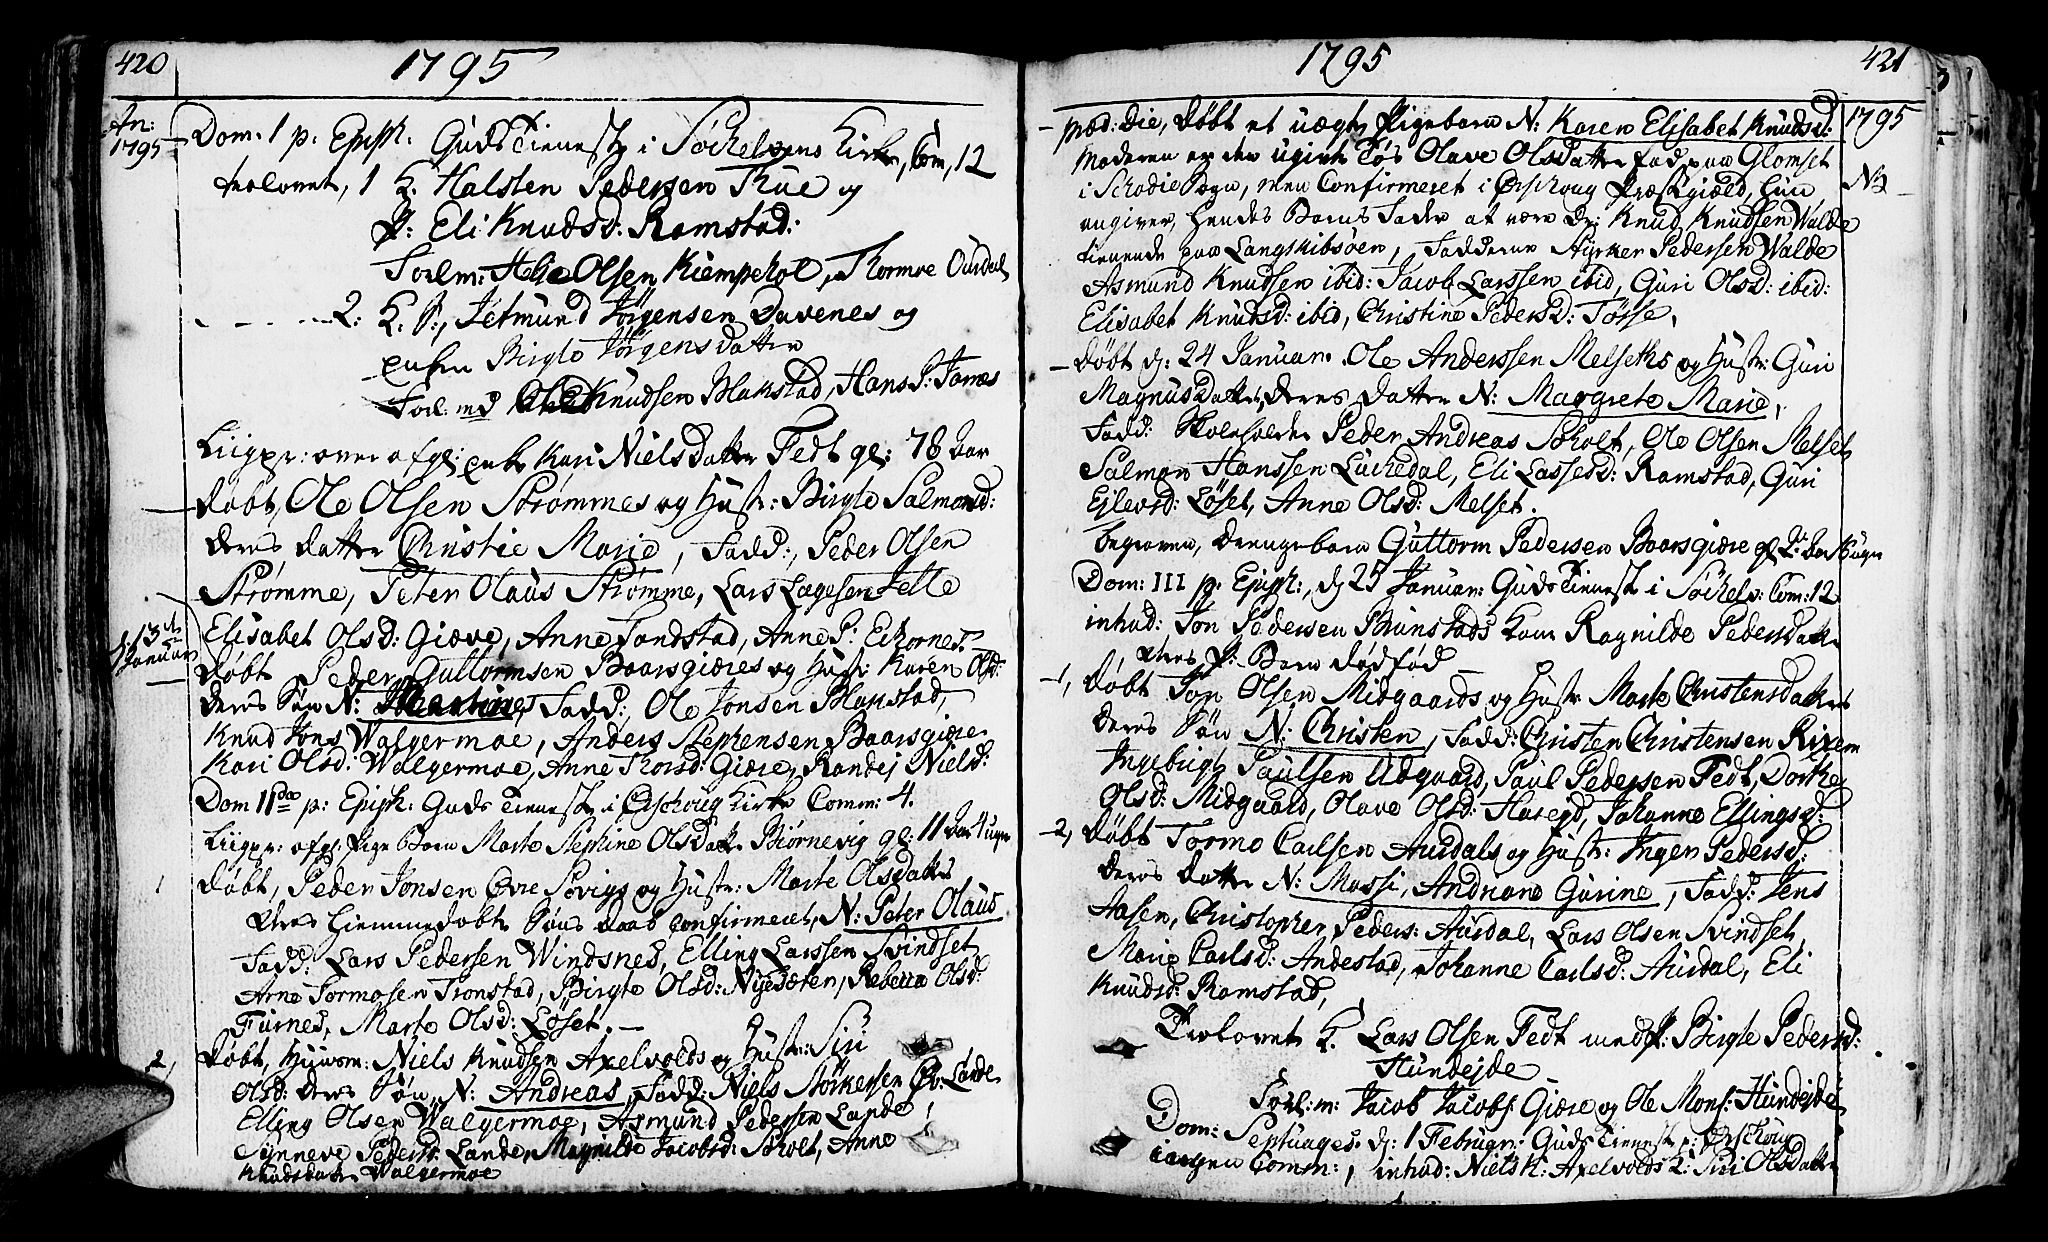 420
1795
An:
1795
Dom: 1 p: Epiph: Guds Tieneste i Søckelvens Kirke, Com, 12
trolovet, 1 K. Halsten Pedersen Rue og
P: Eli Knudsd: Ramstad:
Forlm: Helje Olsen Kiempehol, Thormoe Ousdal
2: K. P:, Jetmund Jørgensen Davenes og
enken Birgte Jørgensdatter
Forl: md Knudsen Blakstad, Hans J: Tomes
Liigpr: over afgl: enke Kari Nielsdatter Fedt gl: 78 Aar
døbt, Ole Olsen Strømmes og Hustr: Birgte Salmonsd:
deres datter Christie Marie, Fadd:, Peder Olsen
Strømme, Peter Olaus Strømme, Lars Lagesen Felle
Elisabet Olsd: Giæve, Anne Tandstad, Anne P: Eckornes
d 13de
Januar
døbt Peder Guttormsen Baarsgiæres og Hustr: Karen Olsd:
deres Søn N: Fadd:, Ole Jonsen Blakstad,
Knud Jons Walgermoe, Anders Stephensen Baarsgiære
Kari Olsd: Walgermoe, Anne Thorsd: Giære, Randej Nielsd:
Dom IIda p: Epiph: Guds Tieneste i Ørschoug Kirke Comm: 4.
Liigpr: afgl: Pige Barn Marte Stephine Olsdatter Biørnevig gl: 11 Aar 4 uger
1 døbt, Peder Jonsen Øvre Søvigs og Hustr: Marte Olsdatters
deres hiemmedøbte Søns daab confirmeret, N: Peter Olaus
Fadd: Lars Pedersen Windsnes, Elling Larssen Svindset
Arne Tormosen Tronstad, Birgte Olsd: Nysæten, Rebecca Olsd:
Furnes, Marte Olsd: Løset.
2, døbt, Huusm: Niels Knudsen Axelvolds og Hustr: Siri
Olsd: deres Søn, N: Andreas, Fadd: Niels Størkersen Lande
Elling Olsen Walgermoe, Asmund Pedersen Lande
Synneve Pedersd: Lande, Magnilde Jacobsd: Søholt, Anne
Knudsdatter Walgermoe
1795
421
1795
præd: die, døbt et uægte Pigebarn N: Karen Elisabet Knudsd:
Moderen er den ugivte Tøs Olave Olsdatter fød paa Glomset
i Schodie Sogn, men Confirmeret i Ørschoug Præstgield, hun
angiver, hendes Barns Fader at være Dr: Knud Knudsen Walde
tienende paa Langskibsøen, Fadderne Styrker Pedersen Walde
Asmund Knudsen ibid: Jacob Larssen ibid, Guri Olsd: ibid:
Elisabet Knudsd: ibid, Christine Pedersd: Tørse,
døbt d: 24 Januar. Ole Anderssen Melseths og Hustr: Guri
Magnusdatter, deres datter N: Margrete Marie,
Fadd: Skoleholder Peder Andreas Søholt, Ole Olsen Melset
Salmon Hanssen Lückedal, Eli Lassesd: Ramstad, Guri
Ejlevsd: Løset, Anne Olsd: Melset.
begraven, drengebarn Guttorm Pedersen Baarsgiære gl 2 Aar 8 uger
Dom: III p: Epiph:, d 25 Januar: Guds Tieneste i Søckels: Com: 12
introd: Jon Pedersen Brunstads Kone Ragnilde Pedersdatter
deres P: Barn dødfød
1, døbt Jon Olsen Midgaards og Hustr Marte Christensdatters
deres Søn N: Christen, Fadd: Christen Christensen Rixem
Ingebrigt Paulsen Udgaard, Paul Pedersen Fedt, Dorthe
Olsd: Midgaard, Olave Olsd: Hareid, Johanne Ellingsd:
2, døbt Tormo Carlsen Ausdals og Hustr: Inger Pedersd:
deres datter N: Massi, Andriane Gurine, Fadd: Jens
Aasen, Christopher Peders: Ausdal, Lars Olsen Svindset,
Marie Carlsd: Andestad, Johanne Carlsd: Ausdal, Eli
Knudsd: Ramstad,
Trolovet K. Lars Olsen Fedt med P: Birgte Pedersd:
Hundejde
Forl: m: Jacob Jacobs: Giære og Ole Mons: Hundejde
Dom: Septuages: d: 1 Februar: Guds Tieneste i Ørschoug
ingen Comm:, introd: Niels K: Axelvolds K: Siri Olsdatter